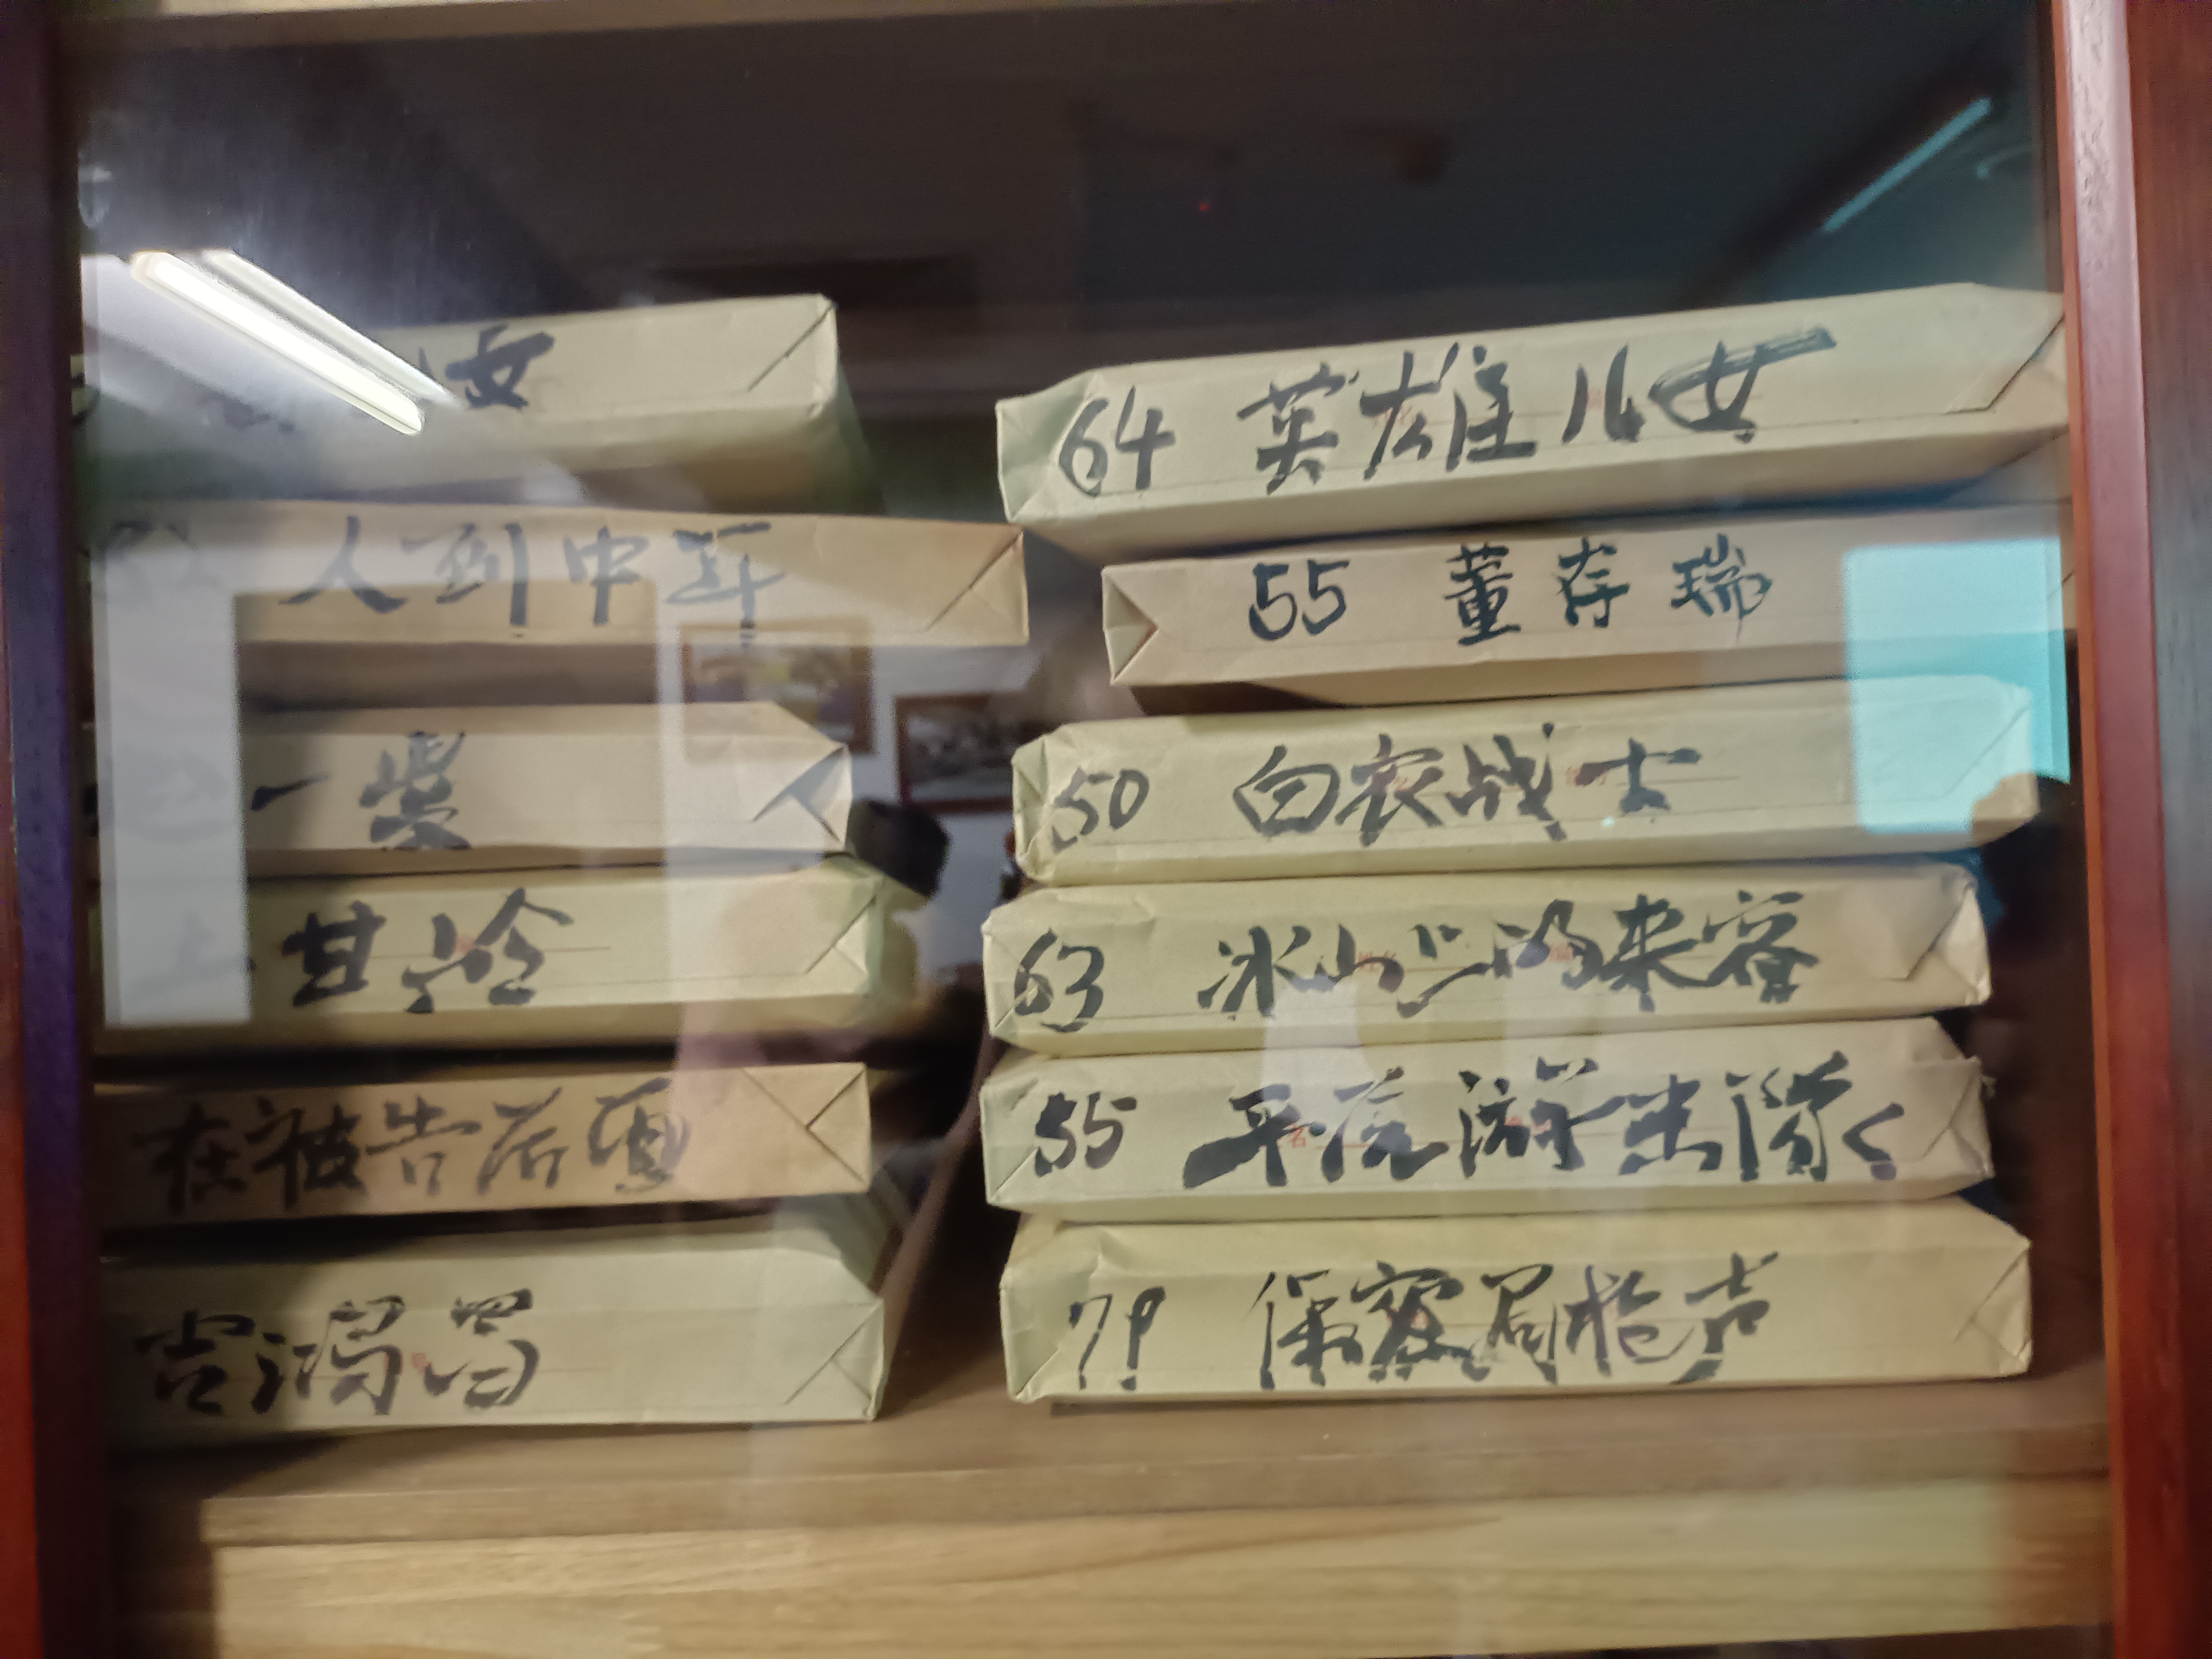 女
人到中年
一柴
甘岭
在被告后面
吉鸿昌
64 英雄儿女
55 董存瑞
50 白衣战士
63 冰山上的来客
55 平原游击队
79 保密局枪声